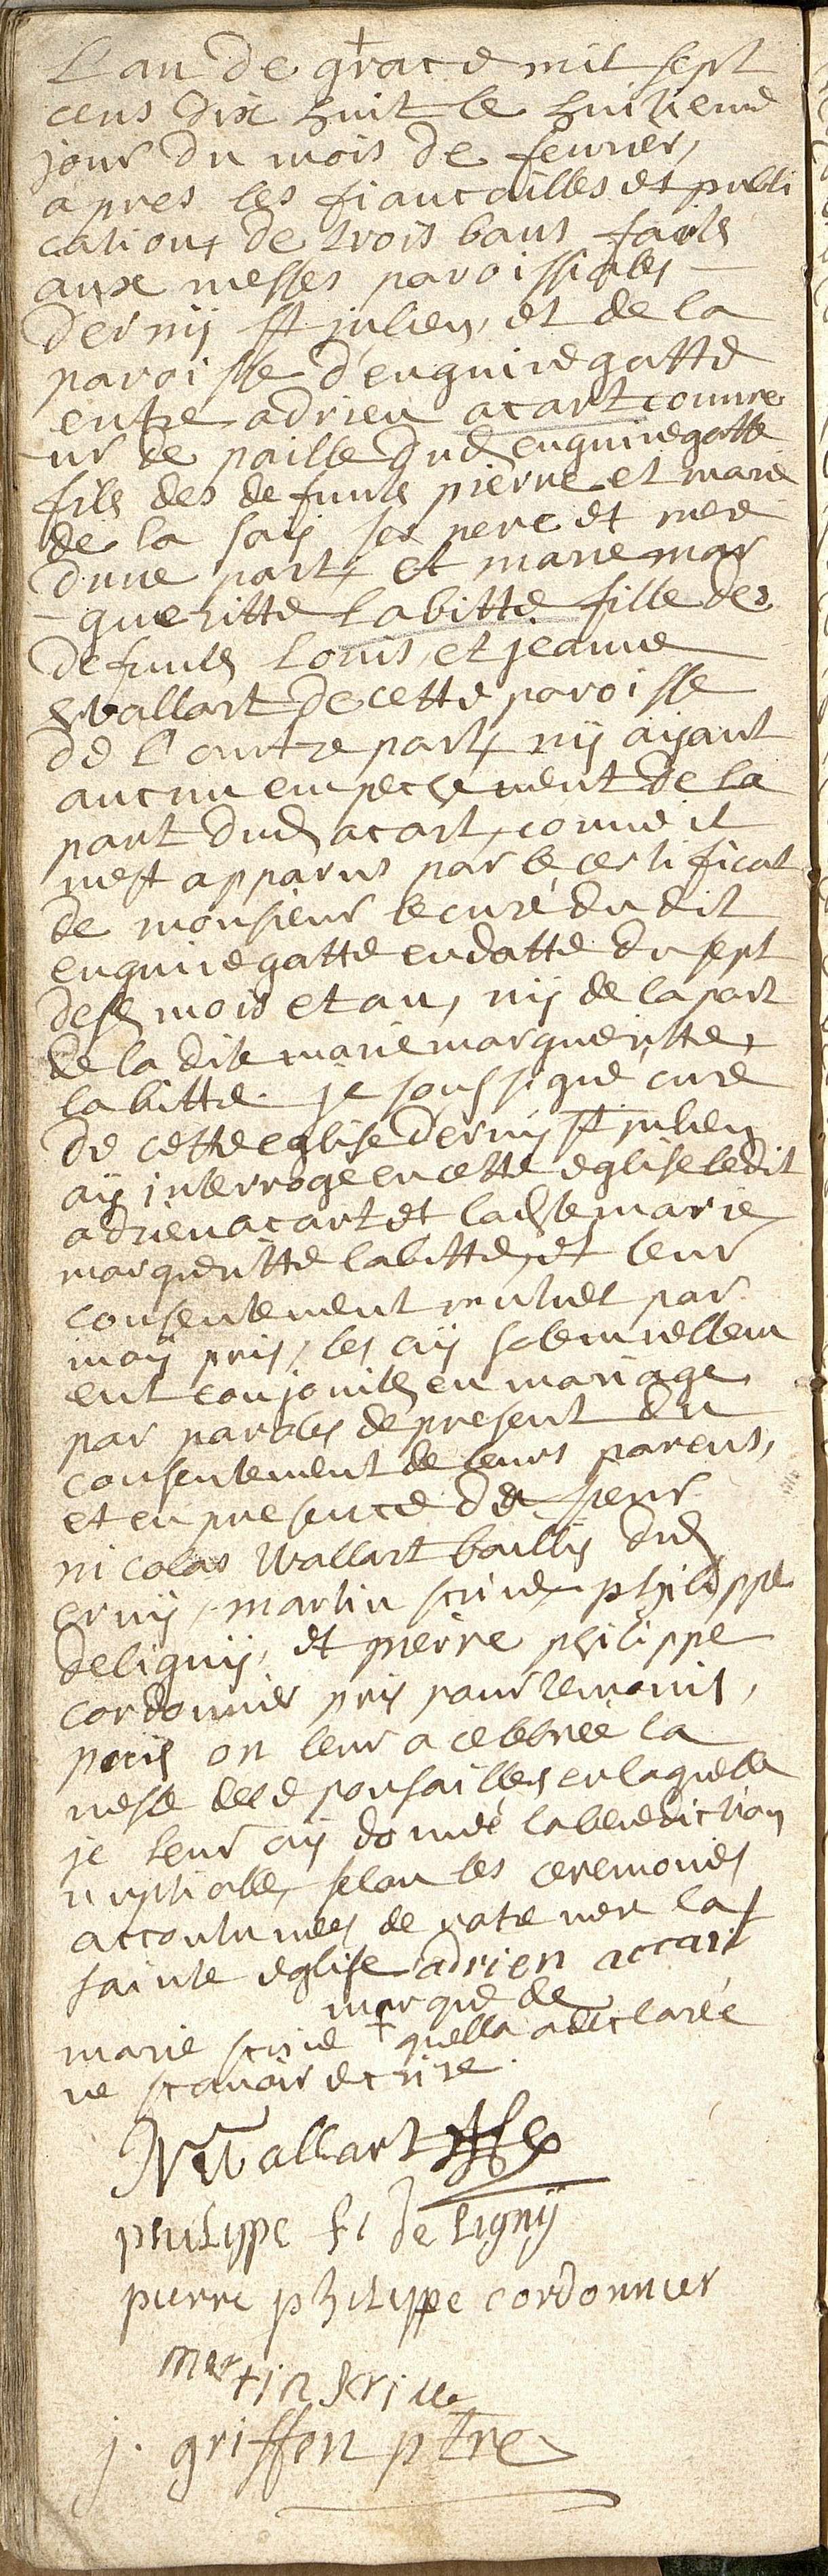 L'an de grace mil sept
cens dix huit le huitieme
jour du mois de fevrier,
apres les fiancailles et publi
cations de trois bans faits
aux messes paroissiales
d'erny st julien, et de la
paroisse d'enguinegatte
entre adrien acart couvre
-ur de paille dud enguinegatte
fils des defunts pierre et marie
de la ses pere et mere
dune part, et marie mar
-gueritte labitte fille des
defunts Louis, et jeanne
Wallart de cette paroisse
de l'autre part, ny ayant
aucun empechement de la
part dud acart, comme il
mest apparus par le certificat
de monsieur le curé du dit
enguinegatte en datte du sept
desd mois et an, ny de la part
de la dite marie margueritte
labitte. je soussigné curé
de cette eglise derny st julien
ay interrogé en cette eglise ledit
adrien acart et ladte marie
margueritte labitte, et leur
consentement mutuel par
moy pris, les ay solemnellem
ent conjoints en mariage
par paroles de present du
consentement de leurs parens,
et en presence de sieur
nicolas Wallart bailly dud
erny, martin scrive philippe
deligny, et pierre philippe
cordonnier pris pour temoins,
puis on leur a celebrée la
messe desd epousailles en laquelle
je leur ay donné la benediction
nuptialle, selon les ceremonies
accoutumées de notre mere la
sainte eglise adrien accart
marque de
marie scrive + quella a declarée
ne scavoir ecrire.
N Wallart
philippe fr de Ligny
pierre philippe cordonnier
martin scrive
j. griffon ptre